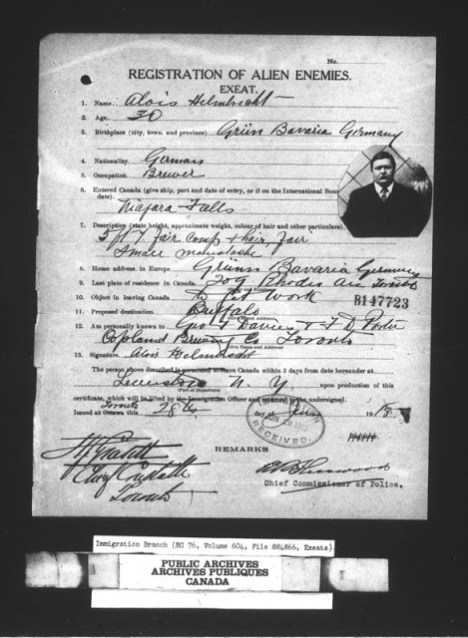 No.
REGISTRATION OF ALIEN ENEMIES.
EXEAT.
1. Name, Alois Helmbrecht
2. Age, 30
3. Birthplace (city, town, and province) Grün Bavaria Germany
4. Nationality, German
5. Occupation, Brewer
6. Entered Canada (give ship, port and date of entry, or if on the International Boun
date).
Niagara Falls
7. Description (state height, approximate weight, colour of hair and other particulars).
5 ft 7 fair comp & hair, fair
Small moustache
8. Home address in Europe Grünn Bavaria Germany
9. Last place of residence in Canada, 209 Rhodes Ave Toronto
10. Object in leaving Canada To get work
B147723
11. Proposed destination, Buffalo
12. Am personally known to Geo F Davies & F D Porter
Copland Brewing Co Toronto
13. Signature, Alois Helmbrecht
The person above described is permitted to leave Canada within 2 days from date hereunder at
Lewiston N. Y. upon production of this
(Port of Departure)
certificate, which will be lifted by the Immigration Officer and returned to the undersigned.
Toronto
Issued at Ottawa this 28th day of June 1915
RECEIVED.
REMARKS
Toronto
Chief Commissioner of Police.
Immigration Branch (RG 76, Volume 604, File 884866, Exeats)
PUBLIC ARCHIVES
ARCHIVES PUBLIQUES
CANADA